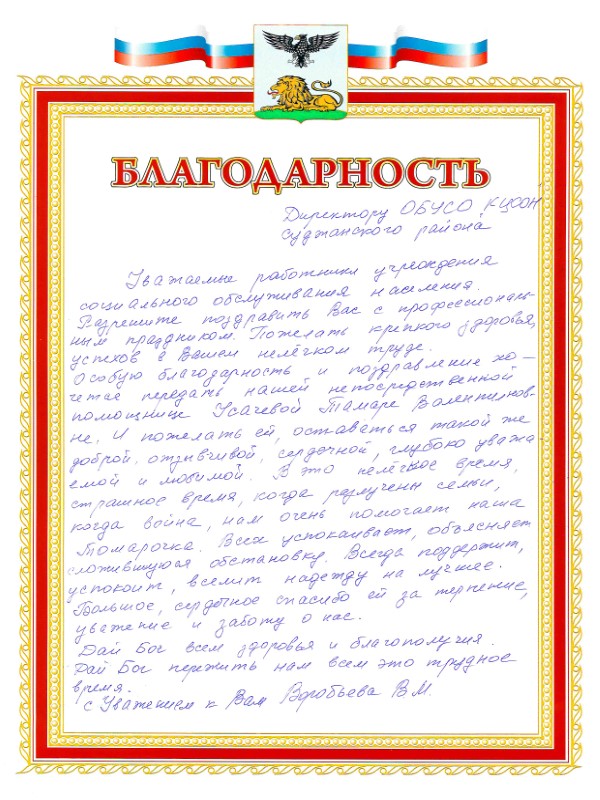 БЛАГОДАРНОСТЬ
Директору ОБУСО "КЦСОН"
Суджанского района
Уважаемые работники учреждения
социального обслуживания населения.
Разрешите поздравить Вас с профессиональ-
ным праздником. Пожелать крепкого здоровья,
успехов в Вашем нелёгком труде.
Особую благодарность и поздравление хо-
четае передать нашей непосредственной
помощнице Усачевой Тамаре Валентинов-
не. И пожелать ей, оставаться такой же
доброй, отзывчивой, сердечной, глубоко уважа-
емой и любимой. В это нелёгкое время,
страшное время, когда разлучены семьи,
когда война, нам очень помогает наша
Томарочка. Всех успокаивает, объясняет
сложившуюся обстановку. Всегда поддержит,
успокоит, вселит надежду на лучшее.
Большое, сердечное спасибо ей за терпение,
уважение и заботу о нас.
Дай Бог всем здоровья и благополучия.
Дай Бог пережить нам всем это трудное
время.
С Уважением к Вам Воробьева В.М.